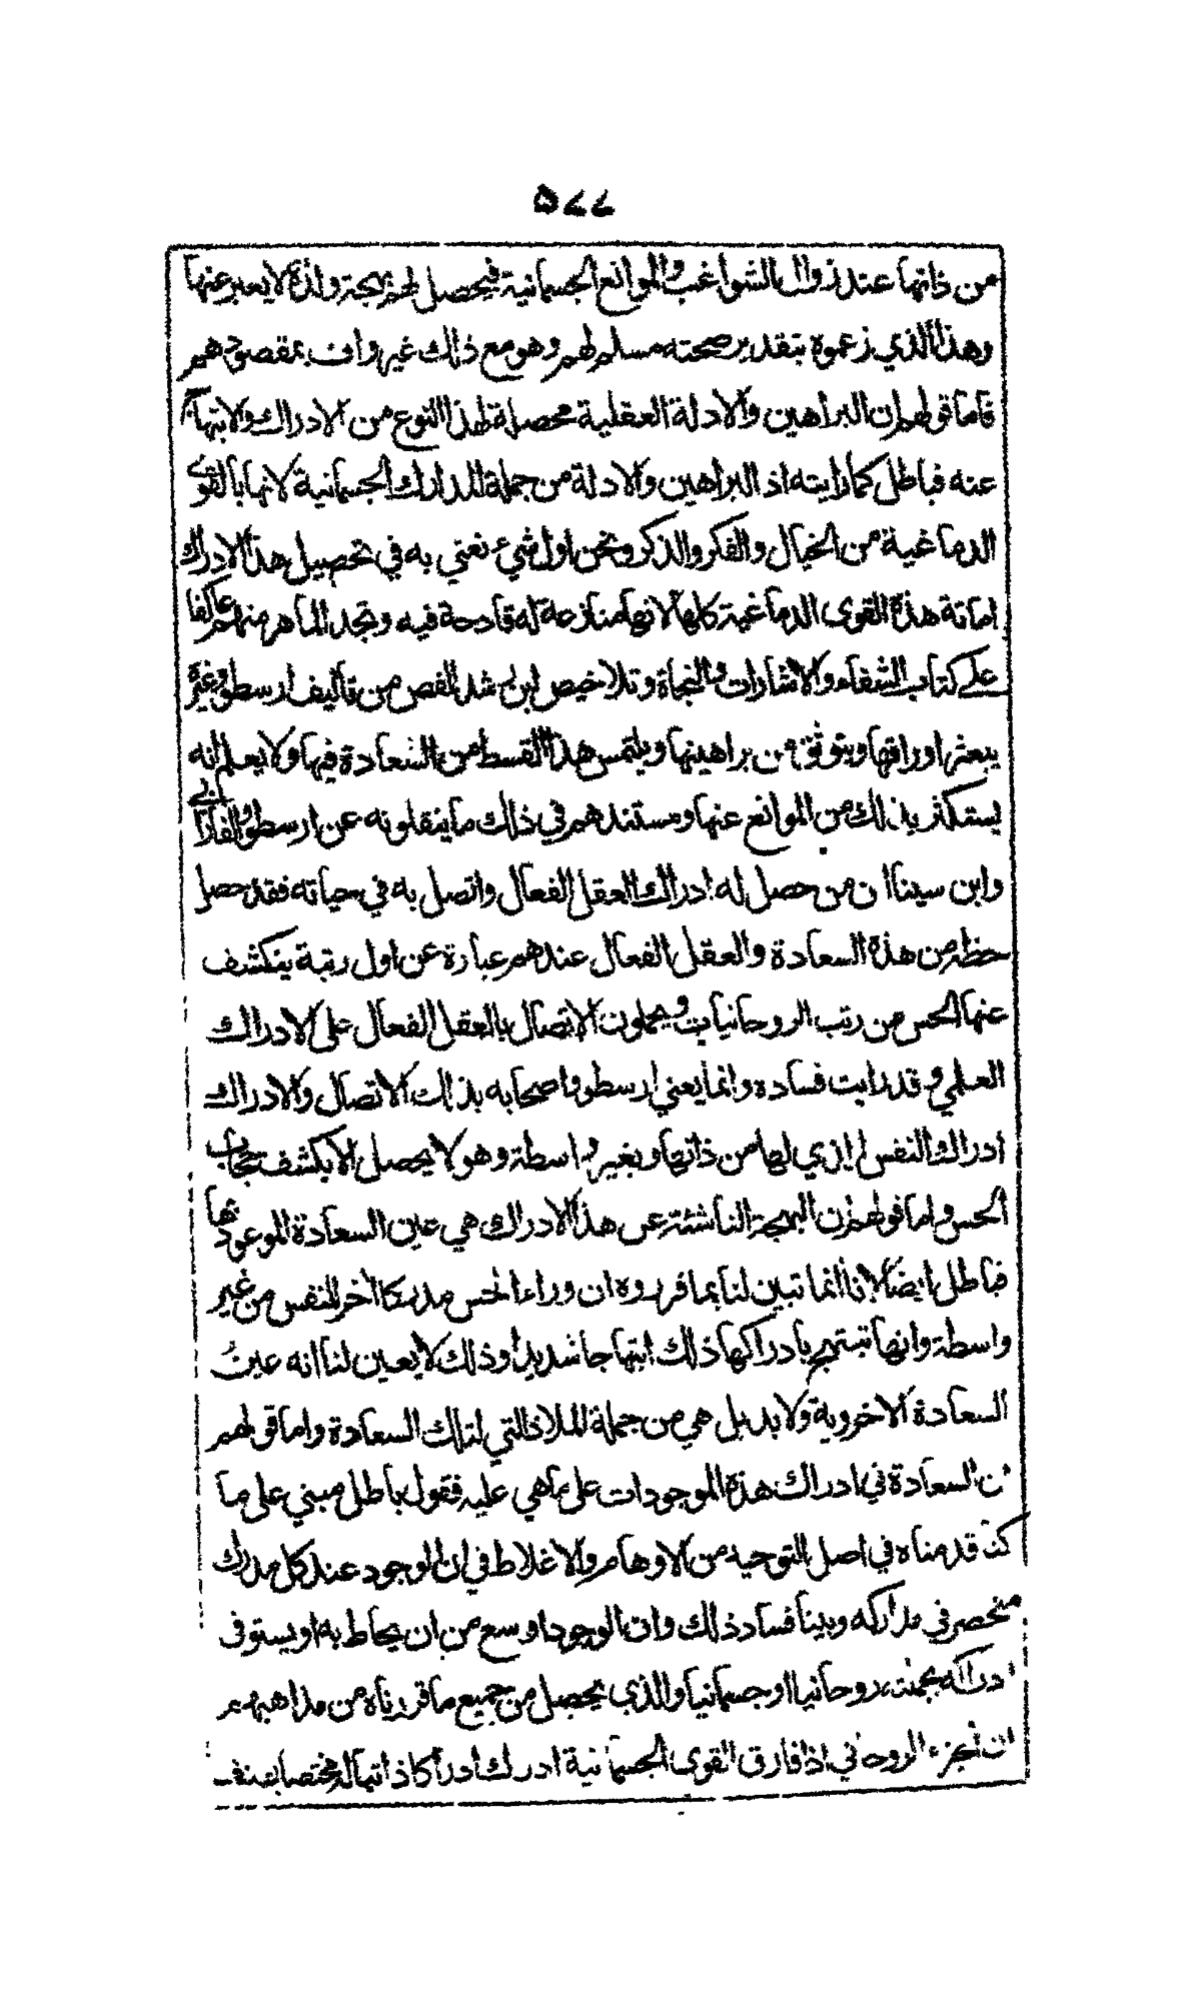 ٥٧٧
من ذاتها عند زوال الشواغب والموانع الجسمانية فيحصل لهم بهجة ولذة لا يعبر عنها
وهذا الذي زعموه بتقدير صحته مسلم لهم وهو مع ذلك غير واف بمقصودهم
فاما قولهم ان البراهين والادلة العقلية محصلة لهذا النوع من الادراك والابتهاج
عنه فباطل كما رايته اذ البراهين والادلة من جملة المدارك الجسمانية لانها بالقوى
الدماغية من الخيال والفكر والذكر ونحن اول شيء نعني به في تحصيل هذا الادراك
اماتة هذه القوى الدماغية كلها لانها منازعة له قادحة فيه وتجد الماهر منهم عاكفا
على كتاب الشفاء والاشارات والنجاة وتلاخيص ابن رشد للفص من تاليف ارسطو وغيره
يبعثر اوراقها ويتوثق من براهينها ويلتمس هذا القسط من السعادة فيها ولا يعلم انه
يستكثر بذلك من الموانع عنها ومستندهم في ذلك ما ينقلونه عن ارسطو والفارابي
وابن سينا ان من حصل له ادراك العقل الفعال واتصل به في حياته فقد حصل
حظه من هذه السعادة والعقل الفعال عندهم عبارة عن اول رتبة ينكشف
عنها الحس من رتب الروحانيات ويحملون الاتصال بالعقل الفعال على الادراك
العلمي وقد رايت فساده وانما يعني ارسطو واصحابه بذلك الاتصال والادراك
ادراك النفس الذي لها من ذاتها وبغير واسطة وهو لا يحصل الا بكشف حجاب
الحس واما قولهم ان البهجة الناشئة عن هذا الادراك هي عين السعادة الموعود بها
فباطل ايضا لانا انما تبين لنا بما قرروه ان وراء الحس مدركا آخر للنفس من غير
واسطة وانها تبتهج بادراكها ذلك ابتهاجا شديدا وذلك لا يعين لنا انه عين
السعادة الاخروية ولا بد بل هي من جملة الملاذ التي لتلك السعادة واما قولهم
ان السعادة في ادراك هذه الموجودات على ما هي عليه فقول باطل مبني على ما
كنا قدمناه في اصل التوحيد من الاوهام والاغلاط في ان الوجود عند كل مدرك
منحصر في مداركه وبينا فساد ذلك وان الوجود اوسع من ان يحاط به او يستوفى
ادراكه بجملته روحانيا او جسمانيا والذي يحصل من جميع ما قررناه من مذاهبهم
ان الجزء الروحاني اذا فارق القوى الجسمانية ادرك ادراكا ذاتيا له مختصا بصنف